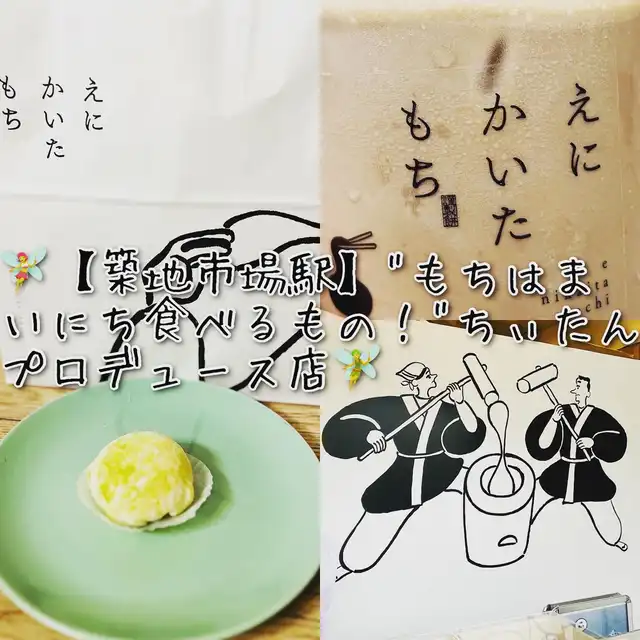 えに
かいた
もち
えに
かいた
もち
e
ni
ta
chi
🧚【築地市場駅】"もちはま
いにち食べるもの！"ちぃたん
プロデュース店🧚